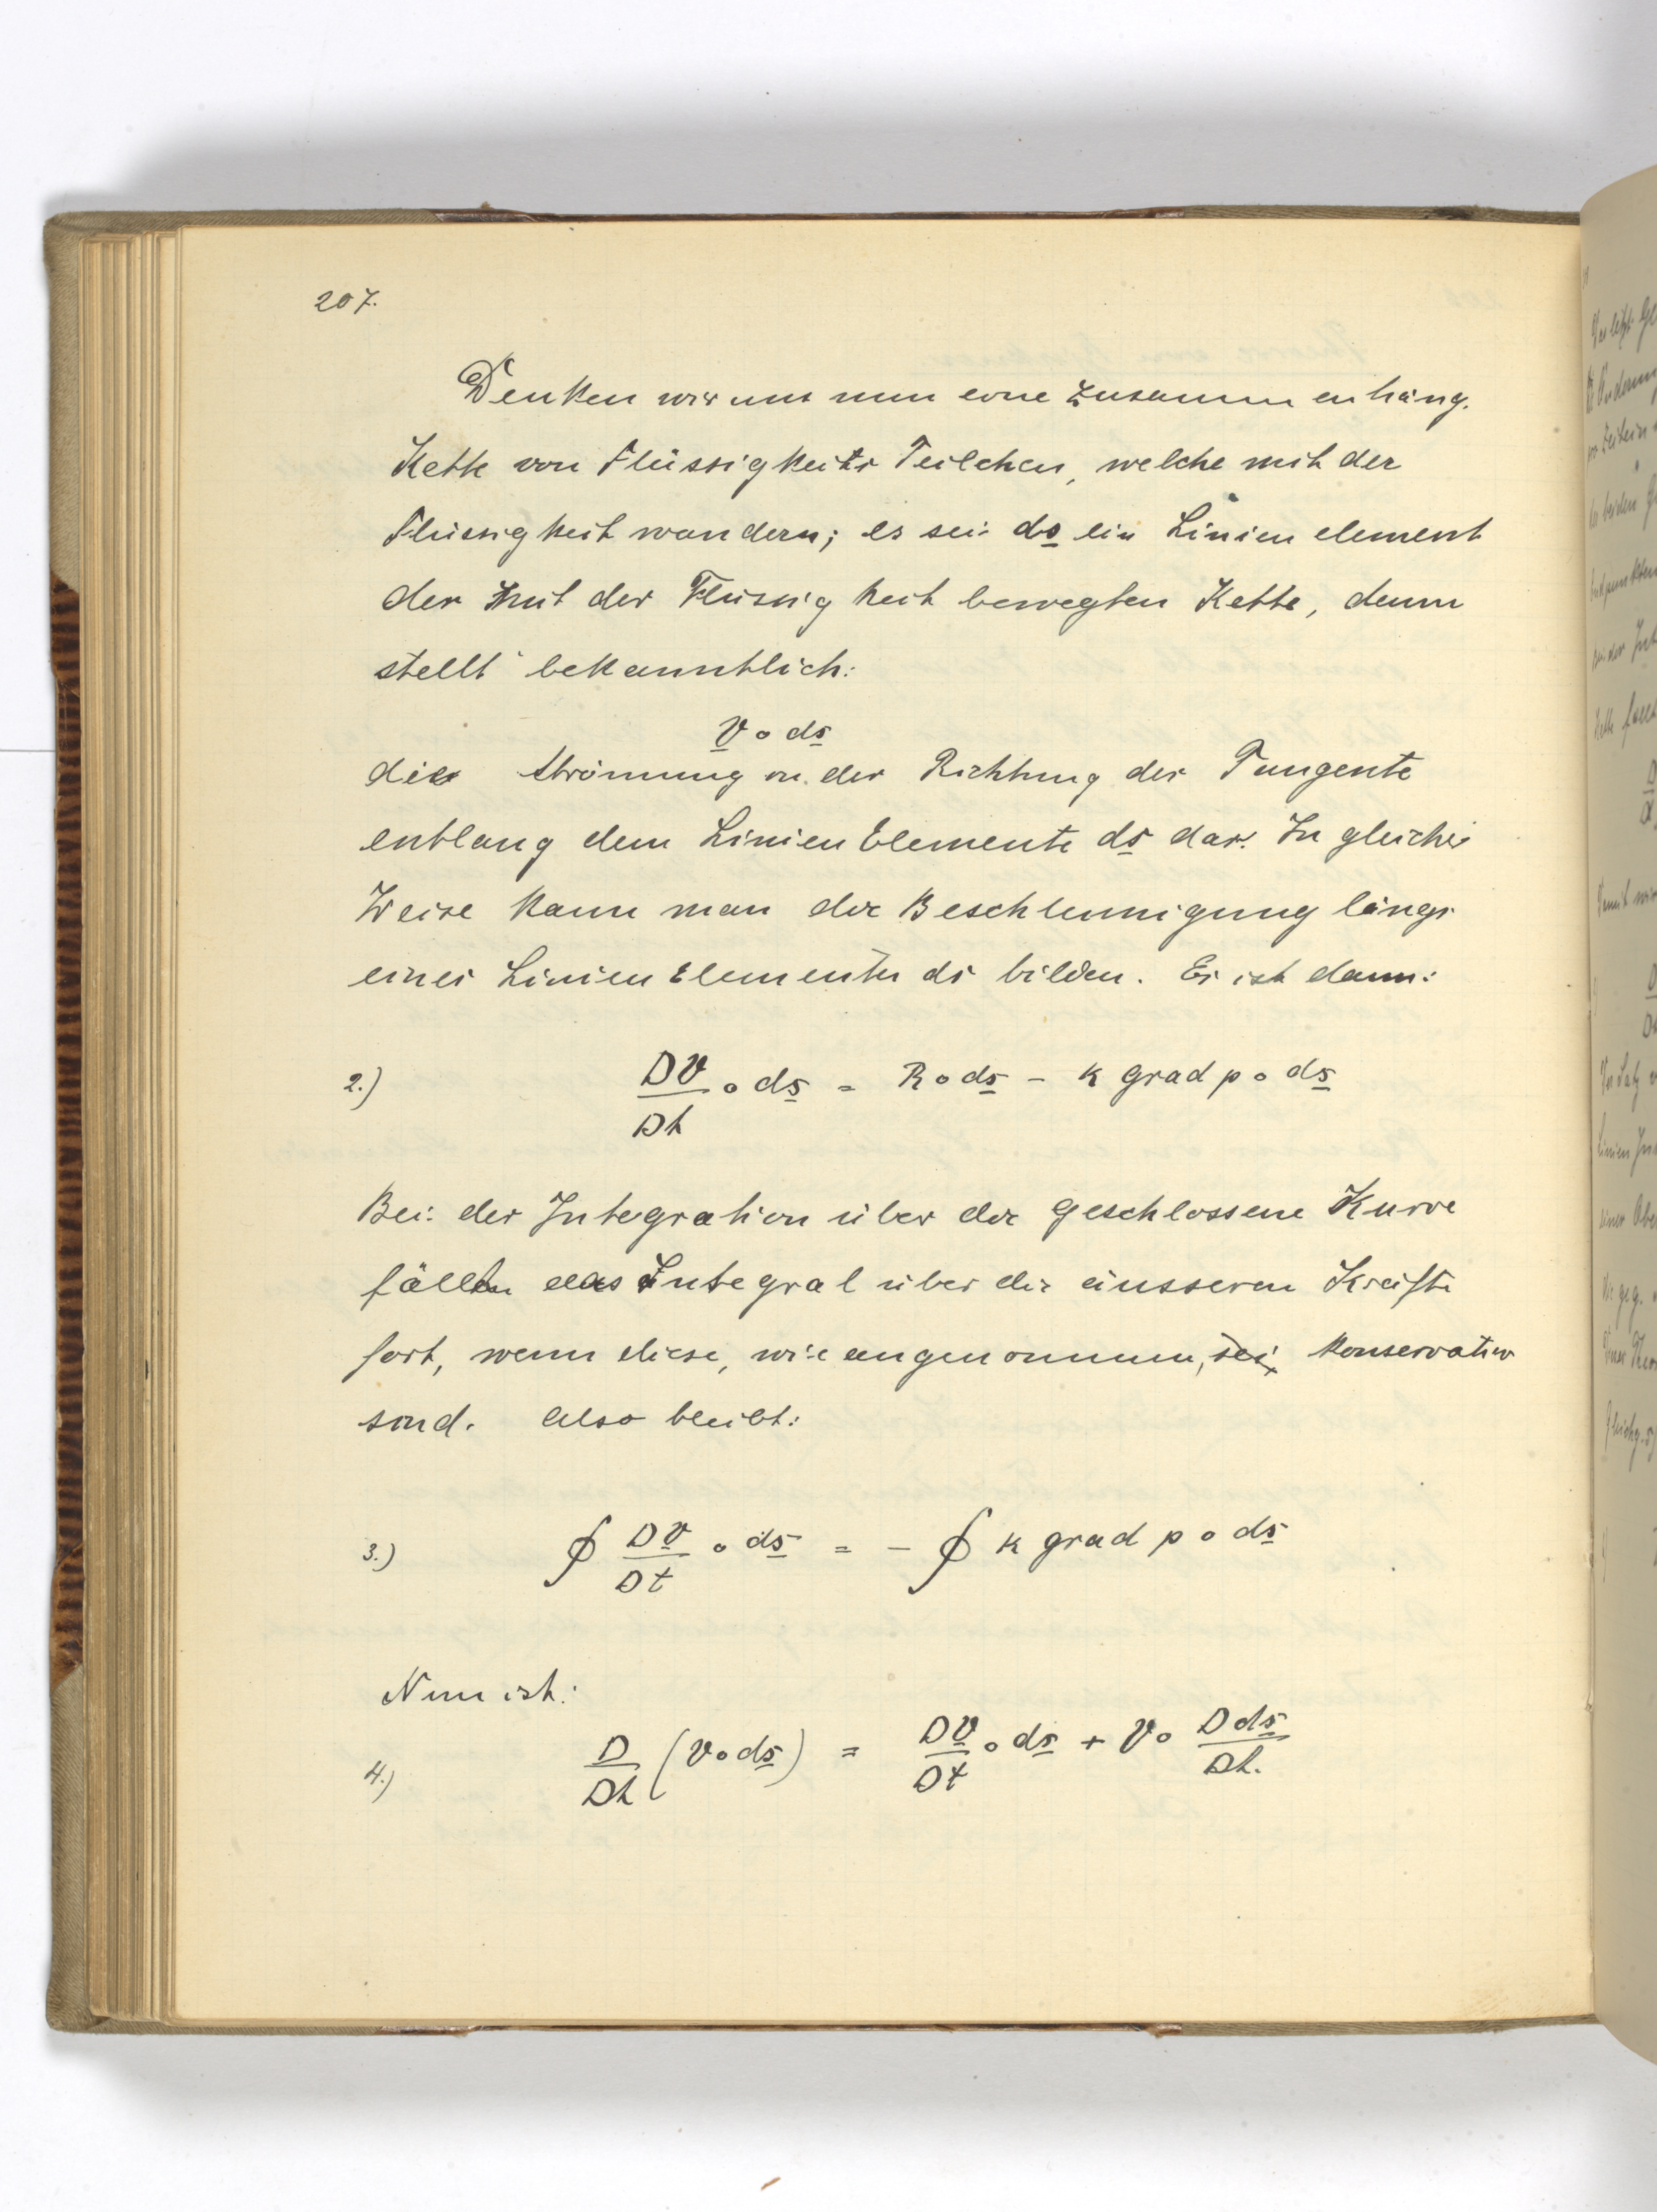 207.
Denken wir uns nun eine zusammenhäng.
Kette von Flüssigkeits Teilchen, welche mit der
Flüssigkeit wandern; es sei ds ein Linienelement
der mit der Flüssigkeit bewegten Kette, dann
stellt bekanntlich:
v∘ds
die Strömung in der Richtung der Tangente
entlang dem LinienElemente ds dar. In gleicher
Weise kann man die Beschleunigung längs
eines LinienElementes ds bilden. Es ist dann:
2.) Dv/Dt ∘ ds = R∘ds − k grad p ∘ ds
Bei der Integration über die geschlossene Kurve
fällt das Integral über die äusseren Kräfte
fort, wenn diese, wie angenommen, konservativ
sind. Also bleibt:
3.) ∮ Dv/Dt ∘ ds = − ∮ k grad p ∘ ds
Nun ist:
4.) D/Dt (v∘ds) = Dv/Dt ∘ ds + v∘ Dds/Dt.